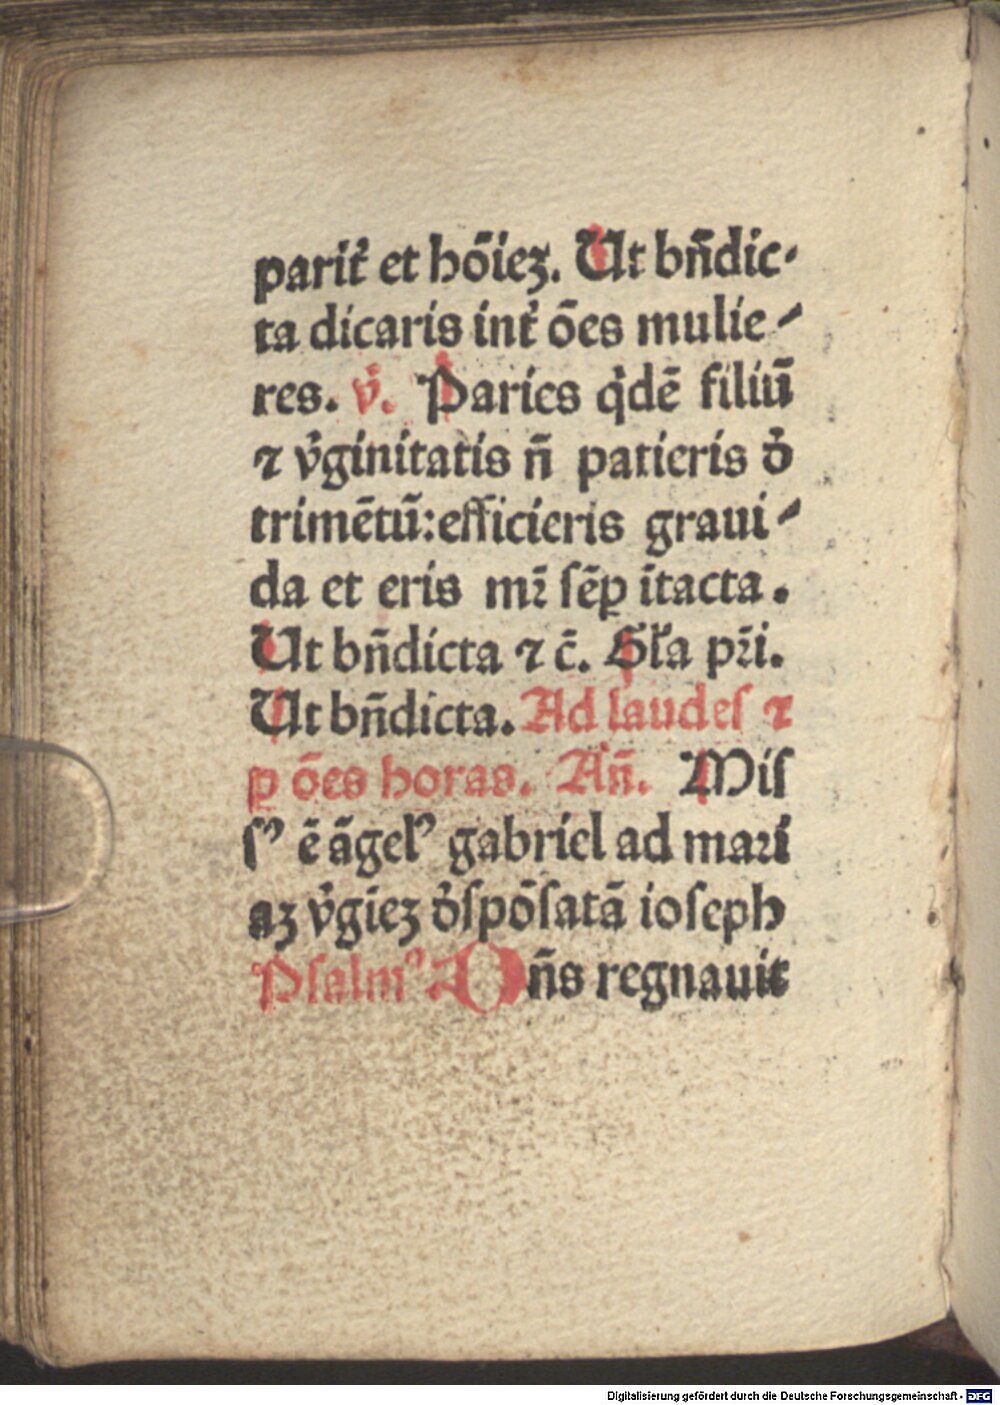 parit᷑ et hōieꝫ. Ut bn̄dic-
ta dicaris int᷑ ōes mulie-
res. v᷑. Paries q̇dē filiū
⁊ v᷑ginitatis n̄ patieris d᷑
trimētū: efficieris graui-
da et eris mr̄ ſēꝑ ītacta.
Ut bn̄dicta ⁊ c̄. Gl᷑a pr̄i.
Ut bn̄dicta. Ad laudeſ ⁊
ꝑ ōes horas. An̄. Miſ
ſꝰ ē āgelꝰ gabriel ad mari
aꝫ v᷑gīeꝫ d᷑ſpōſatā ioſeph
Pſalmꝰ Dn̄s regnauit
Digitalisierung gefördert durch die Deutsche Forschungsgemeinschaft - DFG